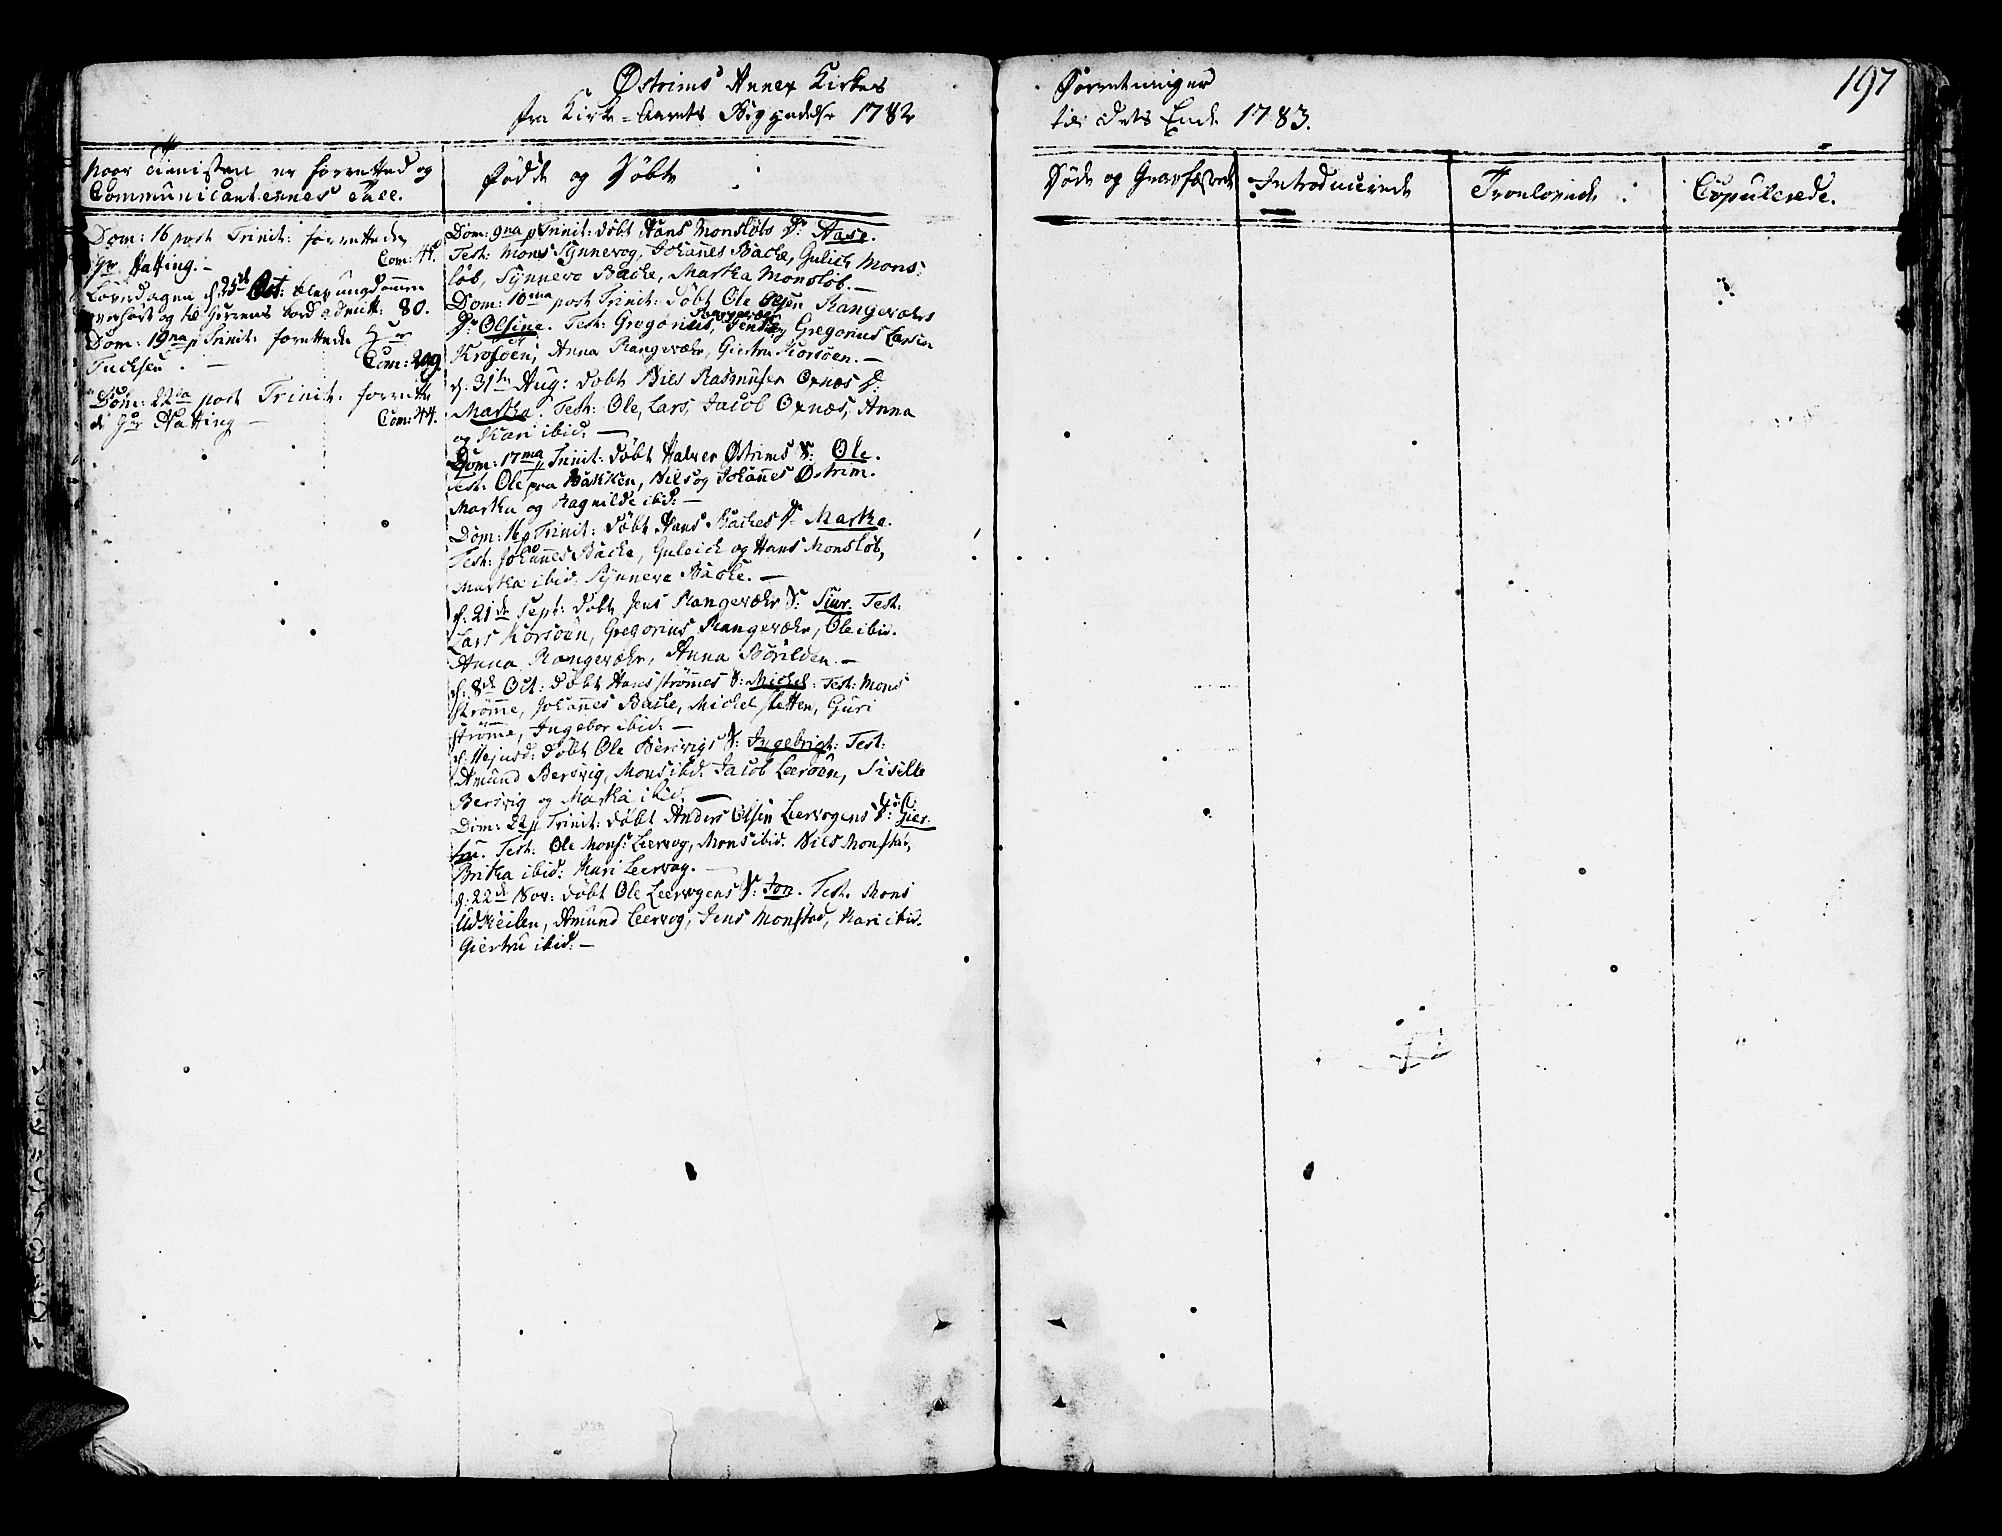 Østrims Annex Kirkes
fra Kirke-Aarets Begyndelse 1782
Forretninger
til dets Ende 1783.
197
naar Tienisten er forretted og
Communicanternes Tall.
Fødde og Døbte
Døde og Gravfæstede
Introducerede
Troelovede
Copulerede.
Dom: 16 post Trinit: forrettede
Hr Hatting.- Com: 44.
Løverdagen d: 25de Oct: blev ungdommen
overhørt og til Herrens bord 80.
Dom: 19na p Trinit: forrettede Hr
Fuchsen. - Com: 209
Dom: 22da post Trinit: forrette
de Hr Hatting - Com: 44.
Dom: 9na p Trinit: døbt Hans Monsløbs D: Aase.
Test: Mons Synnevog, Johannes Backe, Gulich Mons:
løb, Synneva Backe, Martha Monsløb.-
Dom: 10ma post Trinit: døbt Ole Olsen Rangeværs
D: Olsine. Test: Gregorius, Jens Rangevær, Gregorius Larsen
Krosøen, Anna Rangevær, Giertru Korsøen.-
d: 31te Aug: døbt Niels Rasmusen Oxnæs D:
Martha. Test: Ole, Lars, Jacob Oxnæs, Anna
og Kari ibid:-
Dom: 17ma p Trinit: døbt Halver Østrims S: Ole.
Test: Ole paa Bakken, Nils og Johannes Østrim.
Martha og Ragnilde ibid:-
Dom: 16 p Trinit: døbt Hans Backes D: Martha.
Test: Johannes Backe, Guleich og Hans Monsløb,
Martha ibid: Synneve Backe.-
d: 21de Sept: døbt Jens Rangevær S: Siur. Test:
Lars Korsøen, Gregorius Rangevær, Ole ibid.
Anna Rangevær, Anna Børilden.-
d: 8de Oct: døbt Hans Strømes S: Michel: Test: Mons
Strømme, Johannes Backe, Michel Sletten, Guri
Strømme, Ingebor ibid:-
d: 11 ejusd: døbt Ole Bersvigs S: Ingebrigt: Test:
Amund Bersvig, Mons ibid: Jacob Leeröen, Sisille
Bersvig og Martha ibid.-
Dom: 22 p Trinit: døbt Anders Olsen Leervogens D: Gier-
tru. Test: Ole Mons: Leervog, Mons ibid: Niels Monstad,
Britha ibid: Kari Leervog.-
d: 22de Nov: døbt Ole Leervogens S: Jon. Test. Mons
Udkeilen, Amund Leervog, Jens Monstad, Kari ibid.
Giertru ibid:-